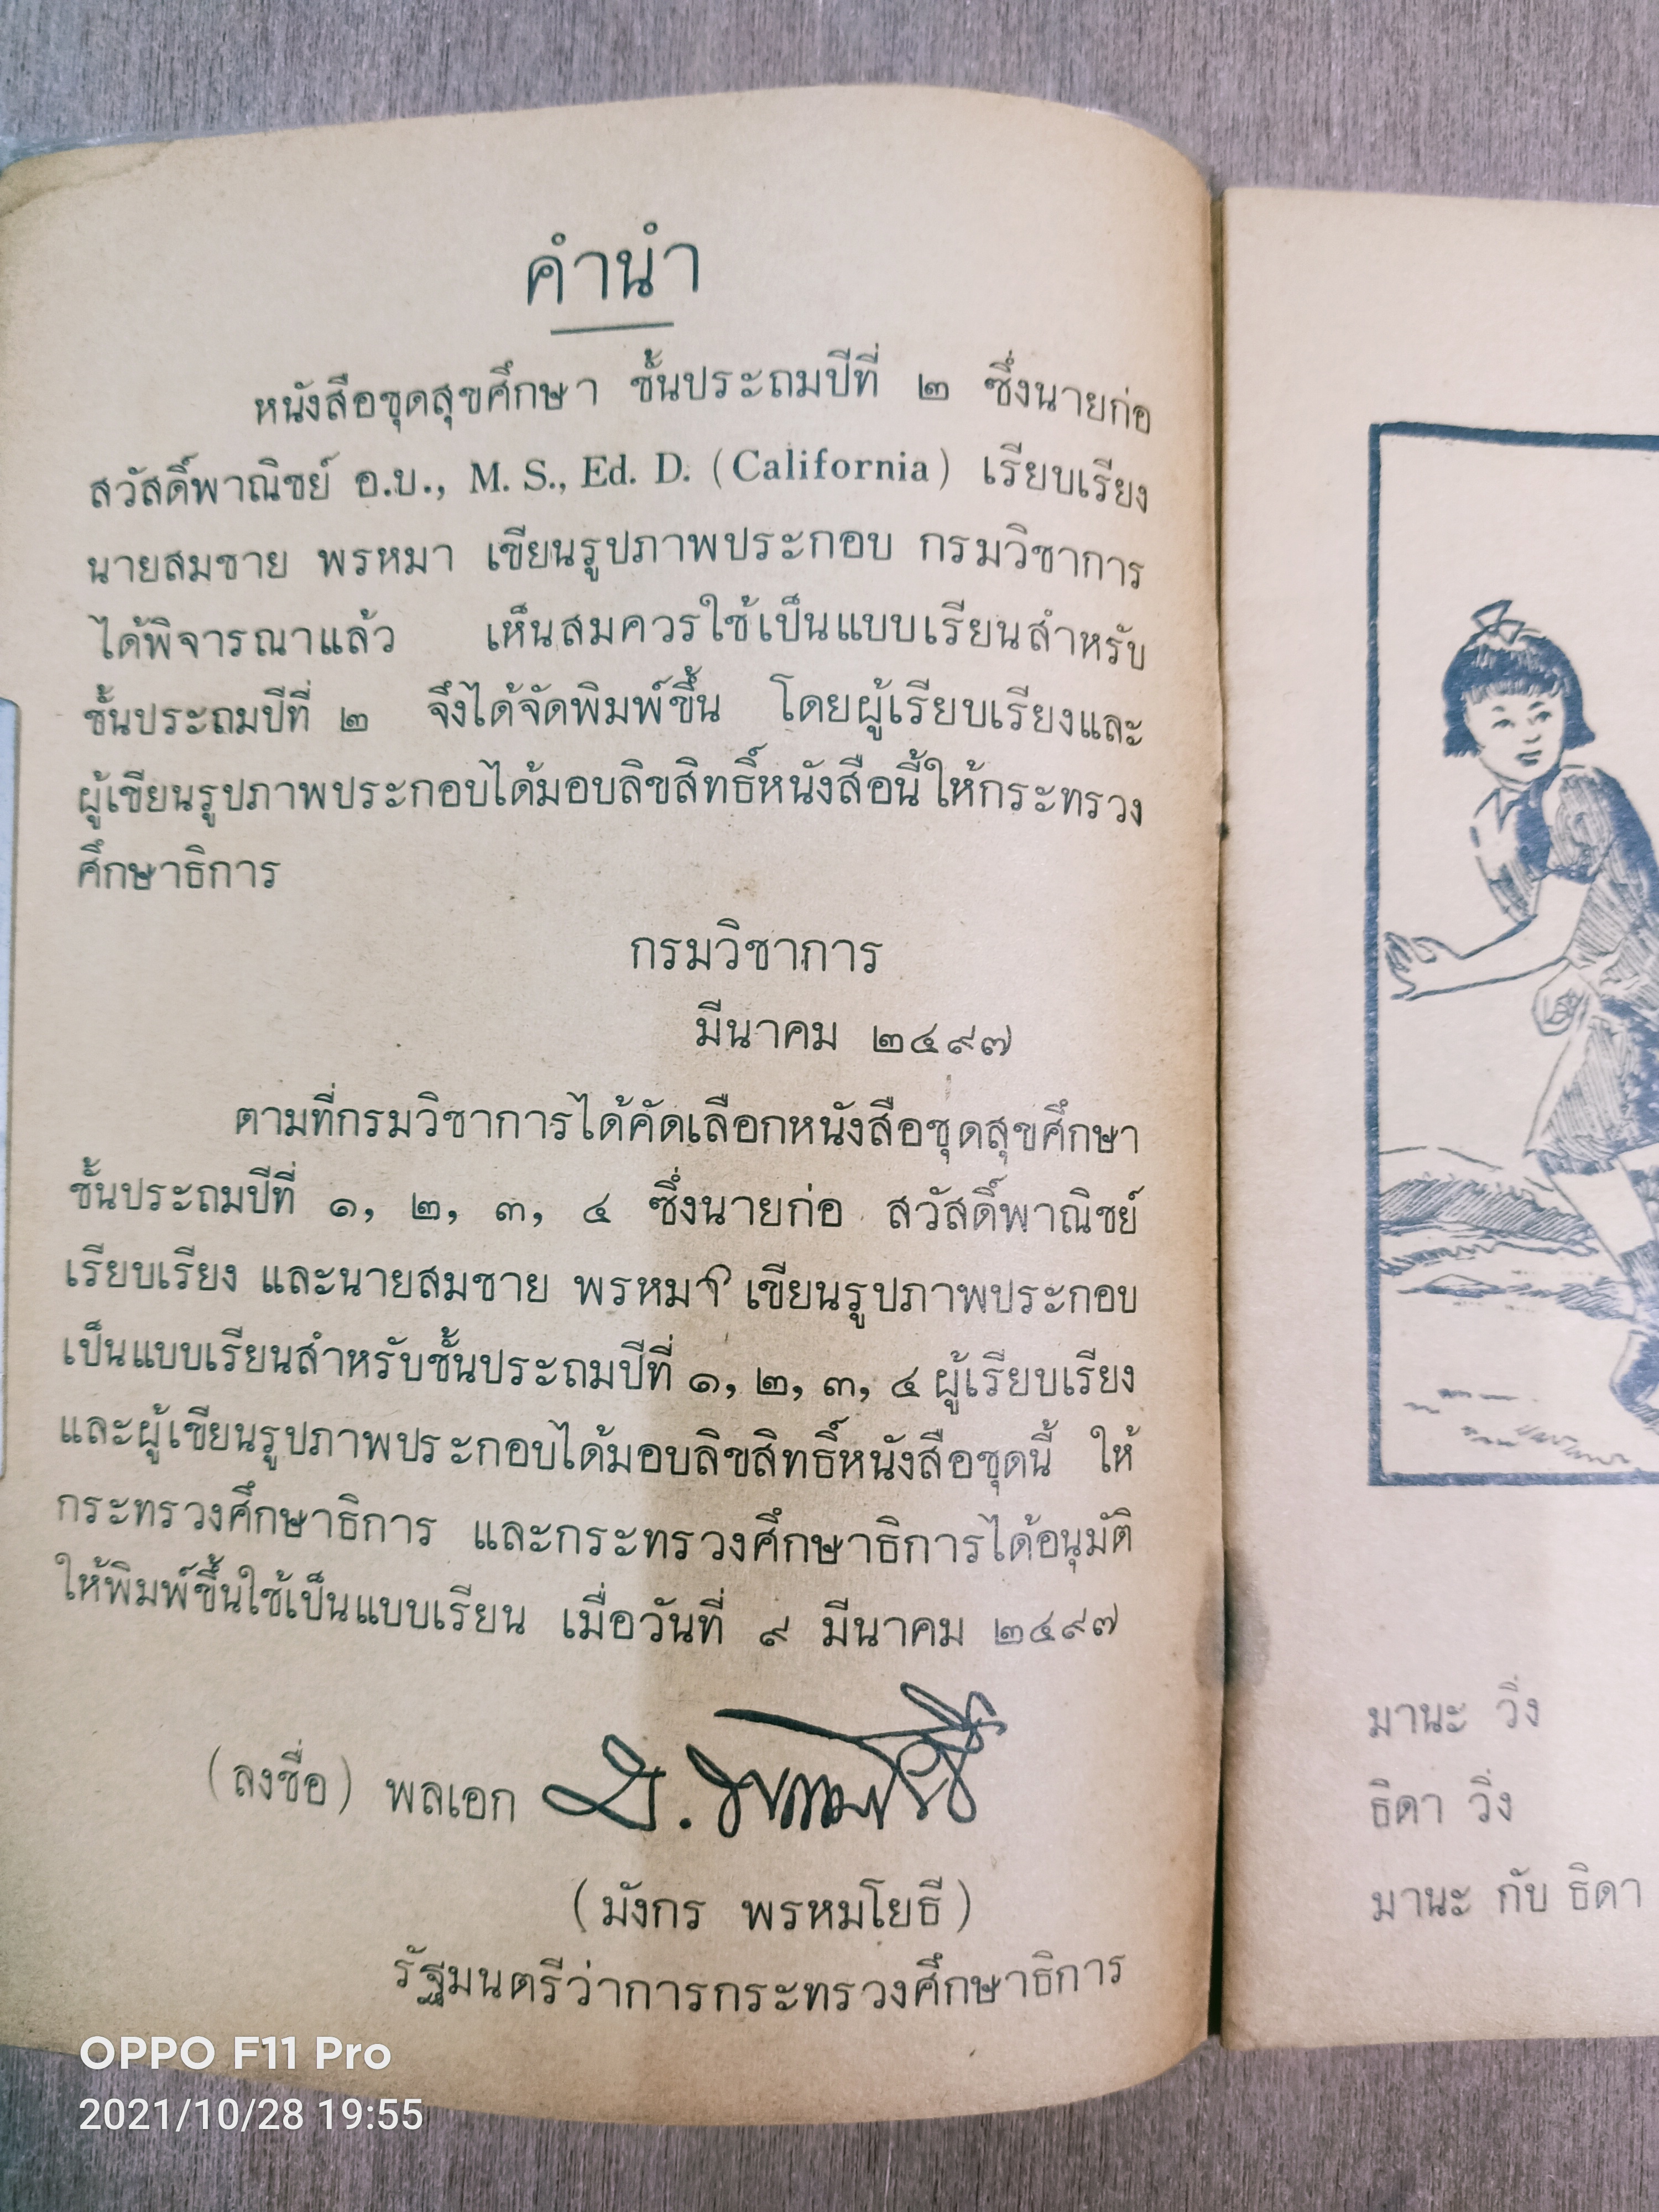 คำนำ
หนังสือชุดสุขศึกษา ชั้นประถมปีที่ ๒ ซึ่งนายก่อ
สวัสดิ์พาณิชย์ อ.บ., M. S., Ed. D. (California) เรียบเรียง
นายสมชาย พรหมา เขียนรูปภาพประกอบ กรมวิชาการ
ได้พิจารณาแล้ว เห็นสมควรใช้เป็นแบบเรียนสำหรับ
ชั้นประถมปีที่ ๒ จึงได้จัดพิมพ์ขึ้น โดยผู้เรียบเรียงและ
ผู้เขียนรูปภาพประกอบได้มอบลิขสิทธิ์หนังสือนี้ให้กระทรวง
ศึกษาธิการ
กรมวิชาการ
มีนาคม ๒๔๙๗
ตามที่กรมวิชาการได้คัดเลือกหนังสือชุดสุขศึกษา
ชั้นประถมปีที่ ๑, ๒, ๓, ๔ ซึ่งนายก่อ สวัสดิ์พาณิชย์
เรียบเรียง และนายสมชาย พรหมา เขียนรูปภาพประกอบ
เป็นแบบเรียนสำหรับชั้นประถมปีที่ ๑, ๒, ๓, ๔ ผู้เรียบเรียง
และผู้เขียนรูปภาพประกอบได้มอบลิขสิทธิ์หนังสือชุดนี้ ให้
กระทรวงศึกษาธิการ และกระทรวงศึกษาธิการได้อนุมัติ
ให้พิมพ์ขึ้นใช้เป็นแบบเรียน เมื่อวันที่ ๙ มีนาคม ๒๔๙๗
(ลงชื่อ) พลเอก
(มังกร พรหมโยธี)
รัฐมนตรีว่าการกระทรวงศึกษาธิการ
มานะ วิ่ง
ธิดา วิ่ง
มานะ กับ ธิดา
OPPO F11 Pro
2021/10/28 19:55